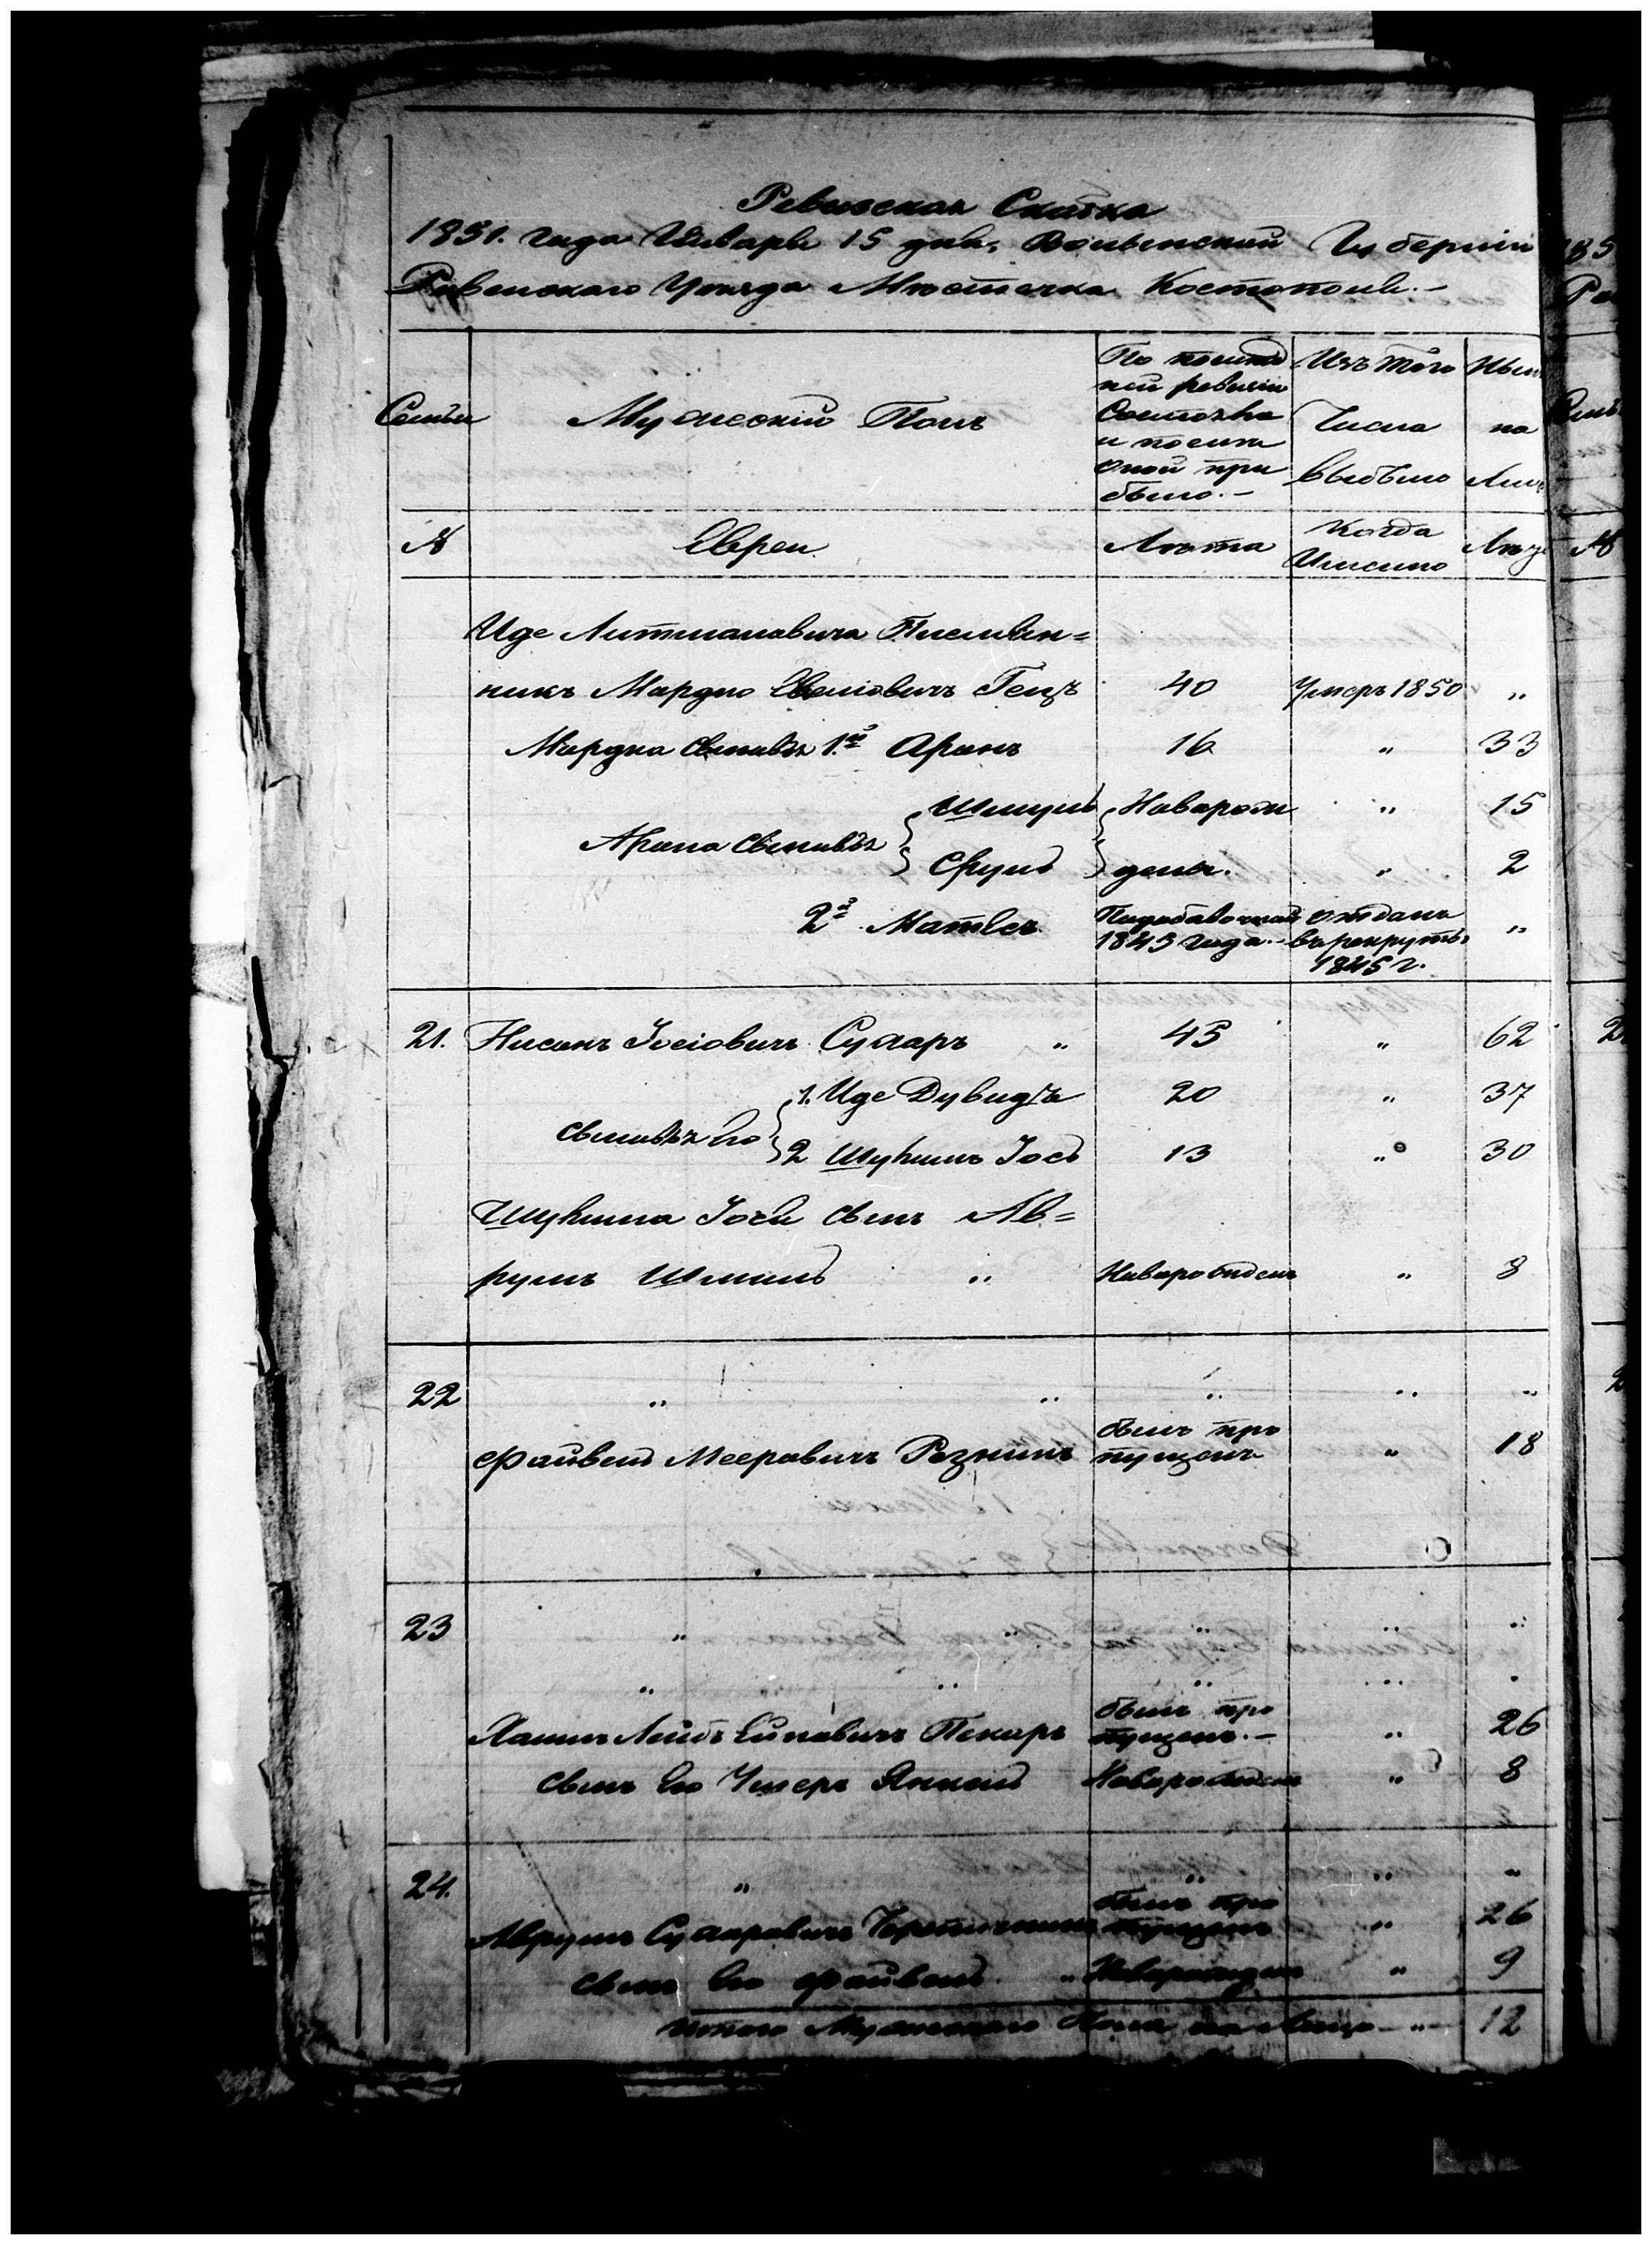 Ревизская Сказка
1851. года Января 15 дня, Волынской Губернии
Ровенскаго Уезда Мюстечка Костополь.—
Семьи
Мужеский Полъ
По послед
ней ревизіи
Состояло
и после
оной при
было.—
Изъ того
Числа
выбыло
Ныне
на
Лицо
№
Евреи
Лета
Когда
Имянно
Лета
Иде Литмановича Писмен=
никъ Мардко Евелiовичъ Гецъ 40 Умеръ 1850 "
Мардка Сыновья 1.й Аронъ 16 " 33
Арона Сыновья { Шмуль } Новорож " 15
Сруль } денъ. " 2
2й Мотель
1845 года.— отданъ
въ рекруты
1845 г. "
21. Нисонъ Іосіовичъ Сухаръ " 45 " 62
Сыновья Его { 1. Иде Дувидъ 20 " 37
2 Шулимъ Іось 13 " 30
Шулима Іося Сынъ Ав=
румъ Шмиль " Новорожденъ " 8
22 " " " " "
Файвель Мееровичъ Резникъ былъ про
пущенъ " 18
23 " " " " "
" " " " "
Хаимъ Лейбъ Пекаръ былъ про
пущенъ.— " 26
Сынъ Его Умеръ Янкель Новорожденъ " 8
24. " " " "
Аврумъ Сухаровичъ былъ про
пущенъ " 26
Сынъ Его Файвель " Новорожденъ " 9
Итого Мужескаго Пола на Лицо — " — 12